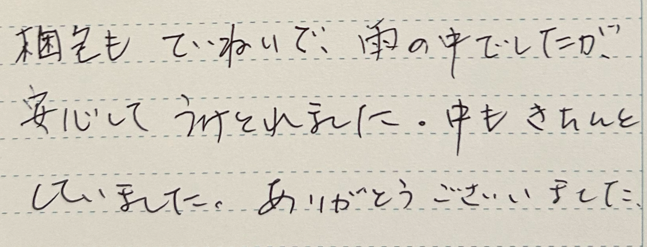 梱包も ていねいで、雨の中でしたが、
安心して うけとれました。中も きちんと
していました。ありがとう ございました。